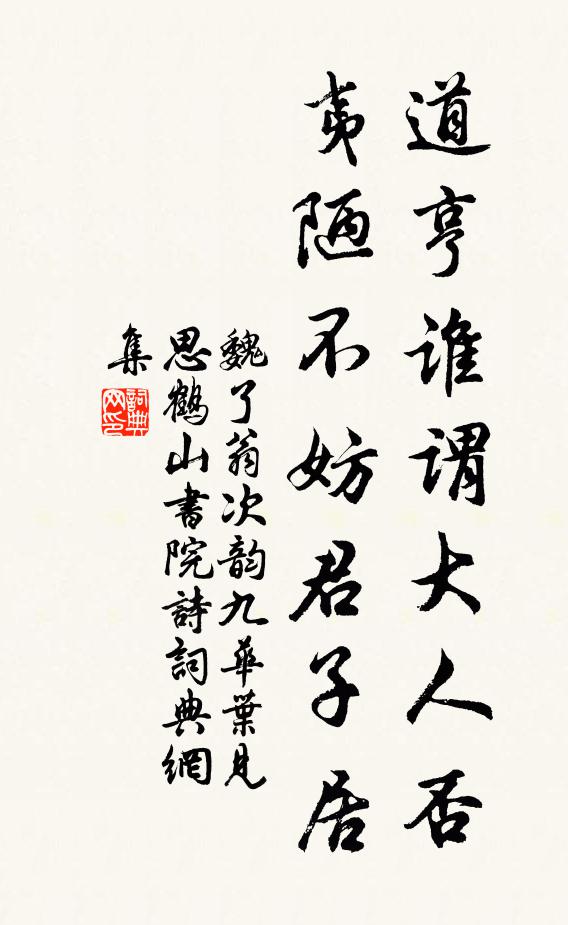 道亨谁谓大人否
夷陋不妨君子居
魏了翁次韵九華葉見
思鶴山書院詩詞典網
集
詞典
网印